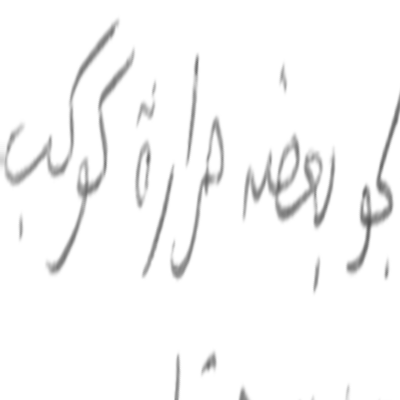 جو بعضه حرارة كوكب